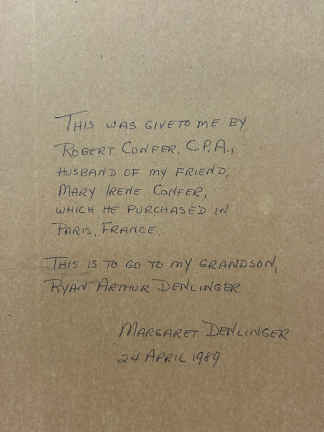 THIS WAS GIVE TO ME BY
ROBERT CONFER, C.P.A.,
HUSBAND OF MY FRIEND,
MARY IRENE CONFER,
WHICH HE PURCHASED IN
PARIS, FRANCE.
THIS IS TO GO TO MY GRANDSON,
RYAN ARTHUR DENLINGER
MARGARET DENLINGER
24 APRIL 1989